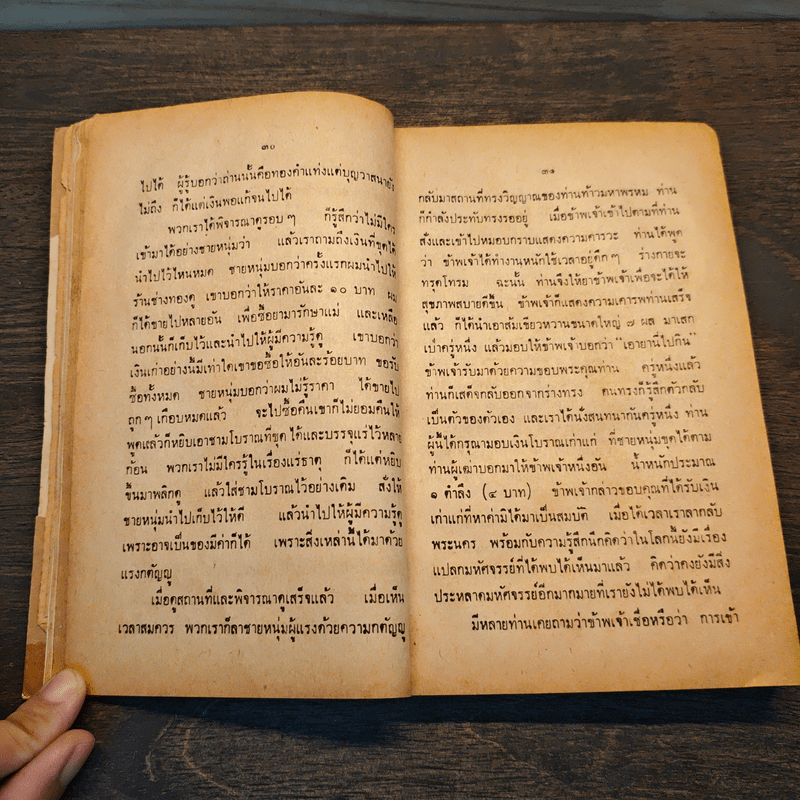 ๓๐
ไปได้ ผู้รู้บอกว่าถ่านนั้นคือทองคำแท่งแต่บุญวาสนายัง
ไม่ถึง ก็ได้แต่เงินพอแก้จนไปได้
พวกเราได้พิจารณาดูรอบๆ ก็รู้สึกว่าไม่มีใคร
เข้ามาได้อย่างชายหนุ่มว่า แล้วเราถามถึงเงินที่ขุดได้
นำไปไว้ไหนหมด ชายหนุ่มบอกว่าครั้งแรกผมนำไปให้
ร้านช่างทองดู เขาบอกว่าให้ราคาอันละ ๑๐ บาท ผม
ก็ได้ขายไปหลายอัน เพื่อซื้อยามารักษาแม่ และเหลือ
นอกนั้นก็เก็บไว้และนำไปให้ผู้มีความรู้ดู เขาบอกว่า
เงินเก่าอย่างนี้มีเท่าใดเขาขอซื้อให้อันละร้อยบาท ขอรับ
ซื้อทั้งหมด ชายหนุ่มบอกว่าผมไม่รู้ราคา ได้ขายไป
ถูกๆ เกือบหมดแล้ว จะไปซื้อคืนเขาก็ไม่ยอมคืนให้
พูดแล้วก็หยิบเอาชามโบราณที่ขุดได้และบรรจุแร่ไว้หลาย
ก้อน พวกเราไม่มีใครรู้ในเรื่องแร่ธาตุ ก็ได้แต่หยิบ
ขึ้นมาพลิกดู แล้วใส่ชามโบราณไว้อย่างเดิม สั่งให้
ชายหนุ่มนำไปเก็บไว้ให้ดี แล้วนำไปให้ผู้มีความรู้ดู
เพราะอาจเป็นของมีค่าก็ได้ เพราะสิ่งเหล่านี้ได้มาด้วย
แรงกตัญญู
เมื่อดูสถานที่และพิจารณาดูเสร็จแล้ว เมื่อเห็น
เวลาสมควร พวกเราก็ลาชายหนุ่มผู้แรงด้วยความกตัญญู
๓๑
กลับมาสถานที่ทรงวิญญาณของท่านท้าวมหาพรหม ท่าน
ก็กำลังประทับทรงรออยู่ เมื่อข้าพเจ้าเข้าไปตามที่ท่าน
สั่งและเข้าไปหมอบกราบแสดงความคารวะ ท่านได้พูด
ว่า ข้าพเจ้าได้ทำงานหนักใช้เวลาอยู่ดึกๆ ร่างกายจะ
ทรุดโทรม ฉะนั้น ท่านจึงให้ยาข้าพเจ้าเพื่อจะได้ให้
สุขภาพสบายดีขึ้น ข้าพเจ้าก็แสดงความเคารพท่านเสร็จ
แล้ว ก็ได้นำเอาส้มเขียวหวานขนาดใหญ่ ๗ ผล มาเสก
เป่าครู่หนึ่ง แล้วมอบให้ข้าพเจ้าบอกว่า “เอายานี้ไปกิน”
ข้าพเจ้ารับมาด้วยความขอบพระคุณท่าน ครู่หนึ่งแล้ว
ท่านก็เสด็จกลับออกจากร่างทรง คนทรงก็รู้สึกตัวกลับ
เป็นตัวของตัวเอง และเราได้นั่งสนทนากันครู่หนึ่ง ท่าน
ผู้นี้ได้กรุณามอบเงินโบราณเก่าแก่ ที่ชายหนุ่มขุดได้ตาม
ท่านผู้เฒ่าบอกมาให้ข้าพเจ้าหนึ่งอัน น้ำหนักประมาณ
๑ ตำลึง (๔ บาท) ข้าพเจ้ากล่าวขอบคุณที่ได้รับเงิน
เก่าแก่ที่หาค่ามิได้มาเป็นสมบัติ เมื่อได้เวลาเราลากลับ
พระนคร พร้อมกับความรู้สึกนึกคิดว่าในโลกนี้ยังมีเรื่อง
แปลกมหัศจรรย์ที่ได้พบได้เห็นมาแล้ว คิดว่าคงยังมีสิ่ง
ประหลาดมหัศจรรย์อีกมากมายที่เรายังไม่ได้พบได้เห็น
มีหลายท่านเคยถามว่าข้าพเจ้าเชื่อหรือว่า การเข้า